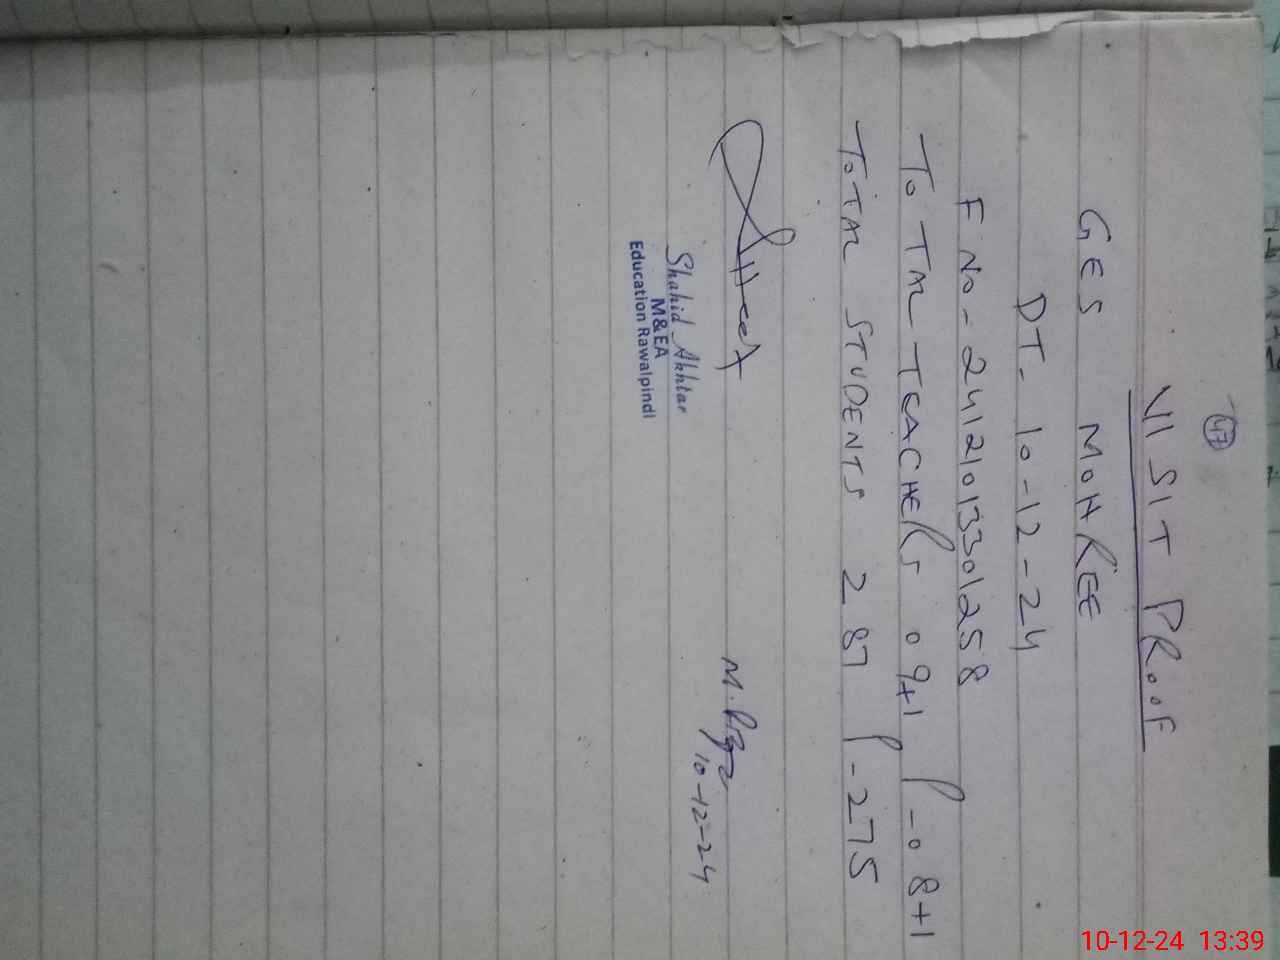 47
VISIT PROOF
GES MOHREE
DT- 10-12-24
F No- 24121013301258
TOTAL TEACHERS 09+1 P-08+1
TOTAL STUDENTS 287 P-275
10-12-24
Shahid Akhtar
M&EA
Education Rawalpindi
10-12-24 13:39